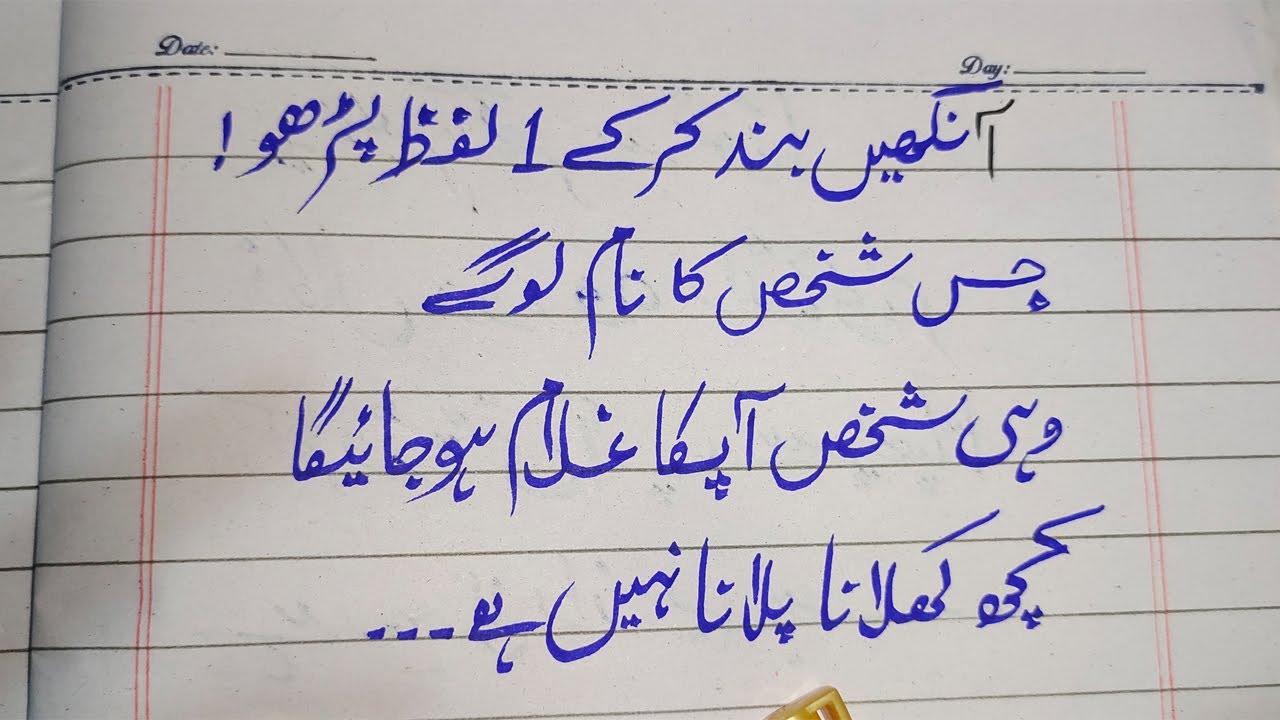 Date: ____________ Day: ____________
آنکھیں بند کرکے 1 لفظ پڑھو!
جس شخص کا نام لوگے
وہی شخص آپکا غلام ہوجائیگا
کچھ کھلانا پلانا نہیں ہے ---